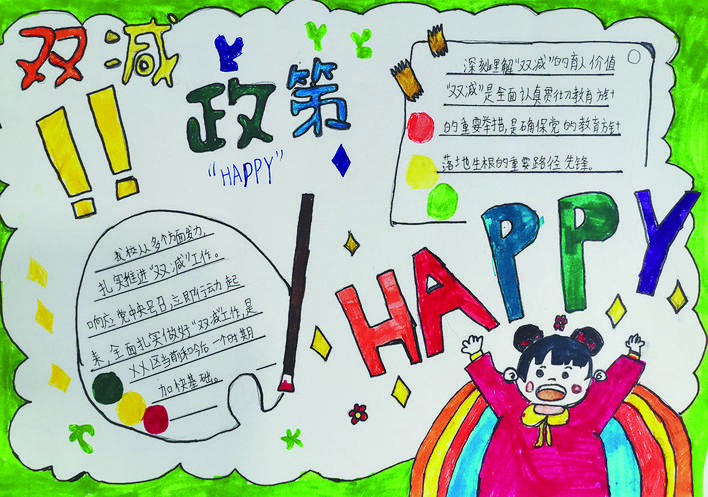 双减
政策
"HAPPY"
深刻理解"双减"的育人价值
"双减"是全面认真贯彻教育方针
的重要举措,是确保党的教育方针
落地生根的重要路径先锋。
HAPPY
我校从多个方面发力,
扎实推进"双减"工作。
响应党中央号召,立即行动起
来,全面扎实做好"双减"工作,是
XX区当前和今后一个时期
加快基础。